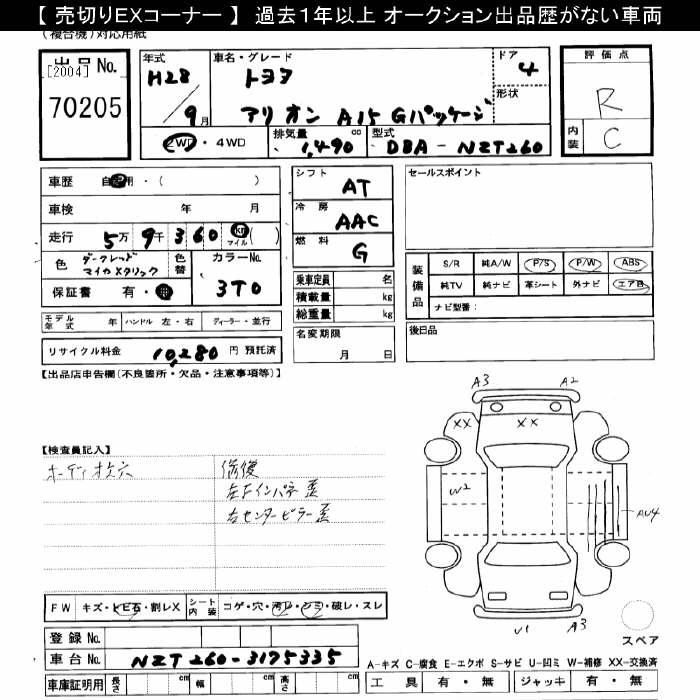 【 売切りEXコーナー 】 過去1年以上 オークション出品歴がない車両
(複合機)対応用紙
出品 No.
[2004]
70205
年式
H28/9月
車名・グレード
トヨタ
アリオン A15 Gパッケージ
ドア
4
形状
評価点
R
内装
C
2WD・4WD
排気量
1,490 cc
型式
DBA-NZT260
車歴 自家用・( )
車検 年 月
走行 5万9千360 km マイル( )
色 ダークレッドマイカメタリック
色替
カラーNo.
3T0
保証書 有・無
モデル年式 年 ハンドル 左・右 ディーラー・並行
リサイクル料金 10,280 円 預託済
シフト AT
冷房 AAC
燃料 G
乗車定員 名
積載量 kg
総重量 kg
名変期限
月 日
セールスポイント
装備品
S/R 純A/W P/S P/W ABS
純TV 純ナビ 革シート 外ナビ エアB
ナビ型番:
後日品
【出品店申告欄(不良箇所・欠品・注意事項等)】
【検査員記入】
修復
左Fインパネ歪
右センターピラー歪
A3 A2
XX XX
W2
AU4
U1 A3
スペア
FW キズ・トビ石・割レX シート内装 コゲ・穴・汚レ・シミ・破レ・スレ
登録 No.
車台 No. NZT260-3175335
車庫証明用 長さ cm 幅 cm 高さ cm
A-キズ C-腐食 E-エクボ S-サビ U-凹ミ W-補修 XX-交換済
工具 有・無 ジャッキ 有・無